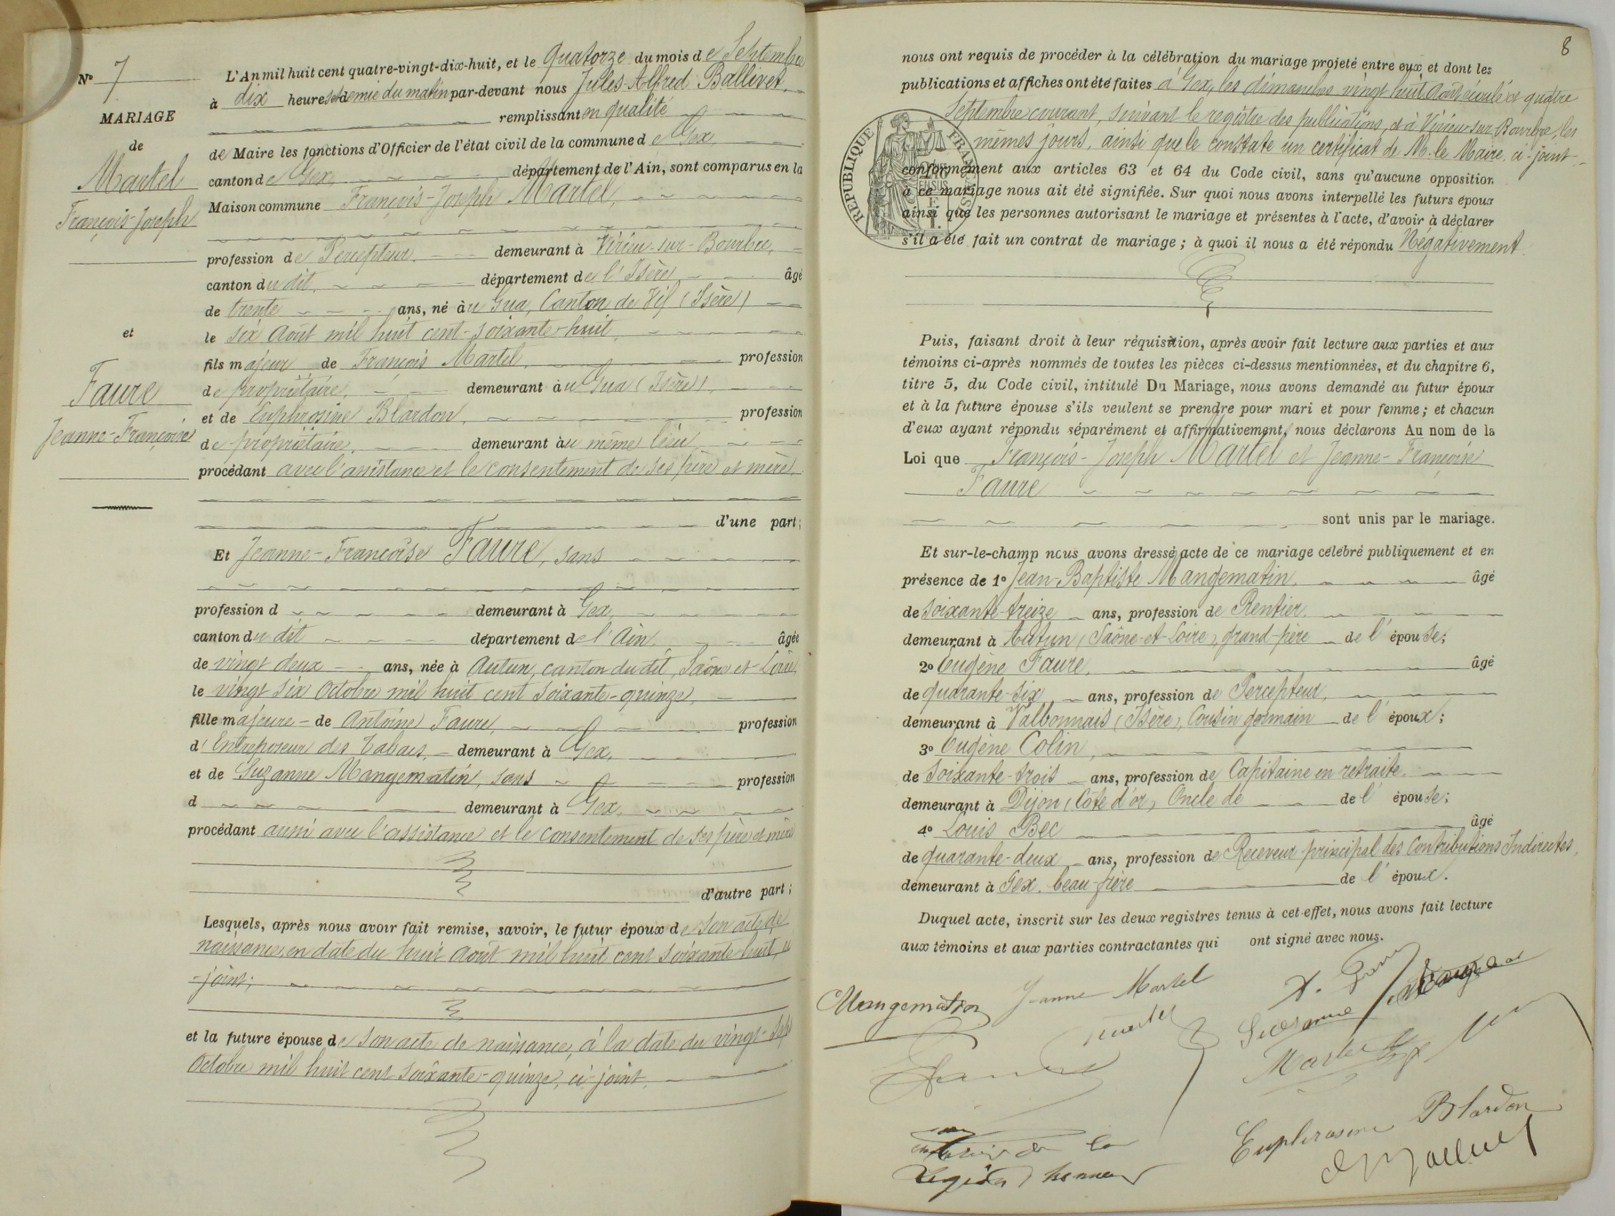 N° 7
MARIAGE
de
Martel
François-Joseph
et
Faure
Jeanne-Françoise
L'An mil huit cent quatre-vingt-dix-huit, et le Quatorze du mois de Septembre
à dix heures et demie du matin par-devant nous Jules-Alfred Ballivet,
remplissant en qualité
de Maire les fonctions d'Officier de l'état civil de la commune de Gex,
canton de Gex, département de l'Ain, sont comparus en la
Maison commune François-Joseph Martel,
profession de Percepteur, demeurant à Virieu-sur-Bourbre,
canton du dit, département de l'Isère, âgé
de trente ans, né au Gua, Canton de Vif (Isère)
le six Août mil huit cent soixante-huit,
fils majeur de François Martel, profession
de propriétaire, demeurant au Gua (Isère),
et de Euphrosine Blardon, profession
de propriétaire, demeurant au même lieu
procédant avec l'assistance et le consentement de ses père et mère
d'une part;
Et Jeanne-Françoise Faure, sans
profession d demeurant à Gex,
canton du dit département de l'Ain, âgée
de vingt deux ans, née à Autun, canton du dit, Saône et Loire
le vingt six Octobre mil huit cent soixante-quinze,
fille majeure de Antoine Faure, profession
d'Entreposeur des Tabacs, demeurant à Gex,
et de Suzanne Mangematin, sans profession
d demeurant à Gex,
procédant aussi avec l'assistance et le consentement de ses père et mère
d'autre part;
Lesquels, après nous avoir fait remise, savoir, le futur époux de son acte de
naissance, en date du huit Août mil huit cent soixante-huit, ci
-joint;
et la future épouse de son acte de naissance, à la date du vingt-sept
Octobre mil huit cent soixante-quinze, ci-joint.
8
nous ont requis de procéder à la célébration du mariage projeté entre eux et dont les
publications et affiches ont été faites à Gex, les dimanches vingt huit Août écoulé et quatre
Septembre courant, suivant le registre des publications, et à Virieu-sur-Bourbre, les
mêmes jours, ainsi que le constate un certificat de M. le Maire, ci-joint
REPUBLIQUE FRANÇAISE
conformément aux articles 63 et 64 du Code civil, sans qu'aucune opposition
à ce mariage nous ait été signifiée. Sur quoi nous avons interpellé les futurs époux
ainsi que les personnes autorisant le mariage et présentes à l'acte, d'avoir à déclarer
s'il a été fait un contrat de mariage; à quoi il nous a été répondu Négativement
Puis, faisant droit à leur réquisition, après avoir fait lecture aux parties et aux
témoins ci-après nommés de toutes les pièces ci-dessus mentionnées, et du chapitre 6,
titre 5, du Code civil, intitulé Du Mariage, nous avons demandé au futur époux
et à la future épouse s'ils veulent se prendre pour mari et pour femme; et chacun
d'eux ayant répondu séparément et affirmativement, nous déclarons Au nom de la
Loi que François-Joseph Martel et Jeanne-Françoise
Faure
sont unis par le mariage.
Et sur-le-champ nous avons dressé acte de ce mariage célébré publiquement et en
présence de 1° Jean-Baptiste Mangematin, âgé
de soixante-treize ans, profession de Rentier,
demeurant à Autun, (Saône-et-Loire), grand-père de l'épouse;
2° Eugène Faure, âgé
de quarante-six ans, profession de Percepteur,
demeurant à Valbonnais (Isère), Cousin germain de l'époux;
3° Eugène Colin,
de soixante-trois ans, profession de Capitaine en retraite,
demeurant à Dijon, (Côte d'or), Oncle de de l'épouse;
4° Louis Bec âgé
de quarante-deux ans, profession de Receveur principal des Contributions Indirectes,
demeurant à Gex, beau-frère de l'époux.
Duquel acte, inscrit sur les deux registres tenus à cet effet, nous avons fait lecture
aux témoins et aux parties contractantes qui ont signé avec nous.
Mangematin Jeanne Martel
Martel
Suzanne
Euphrosine Blardon